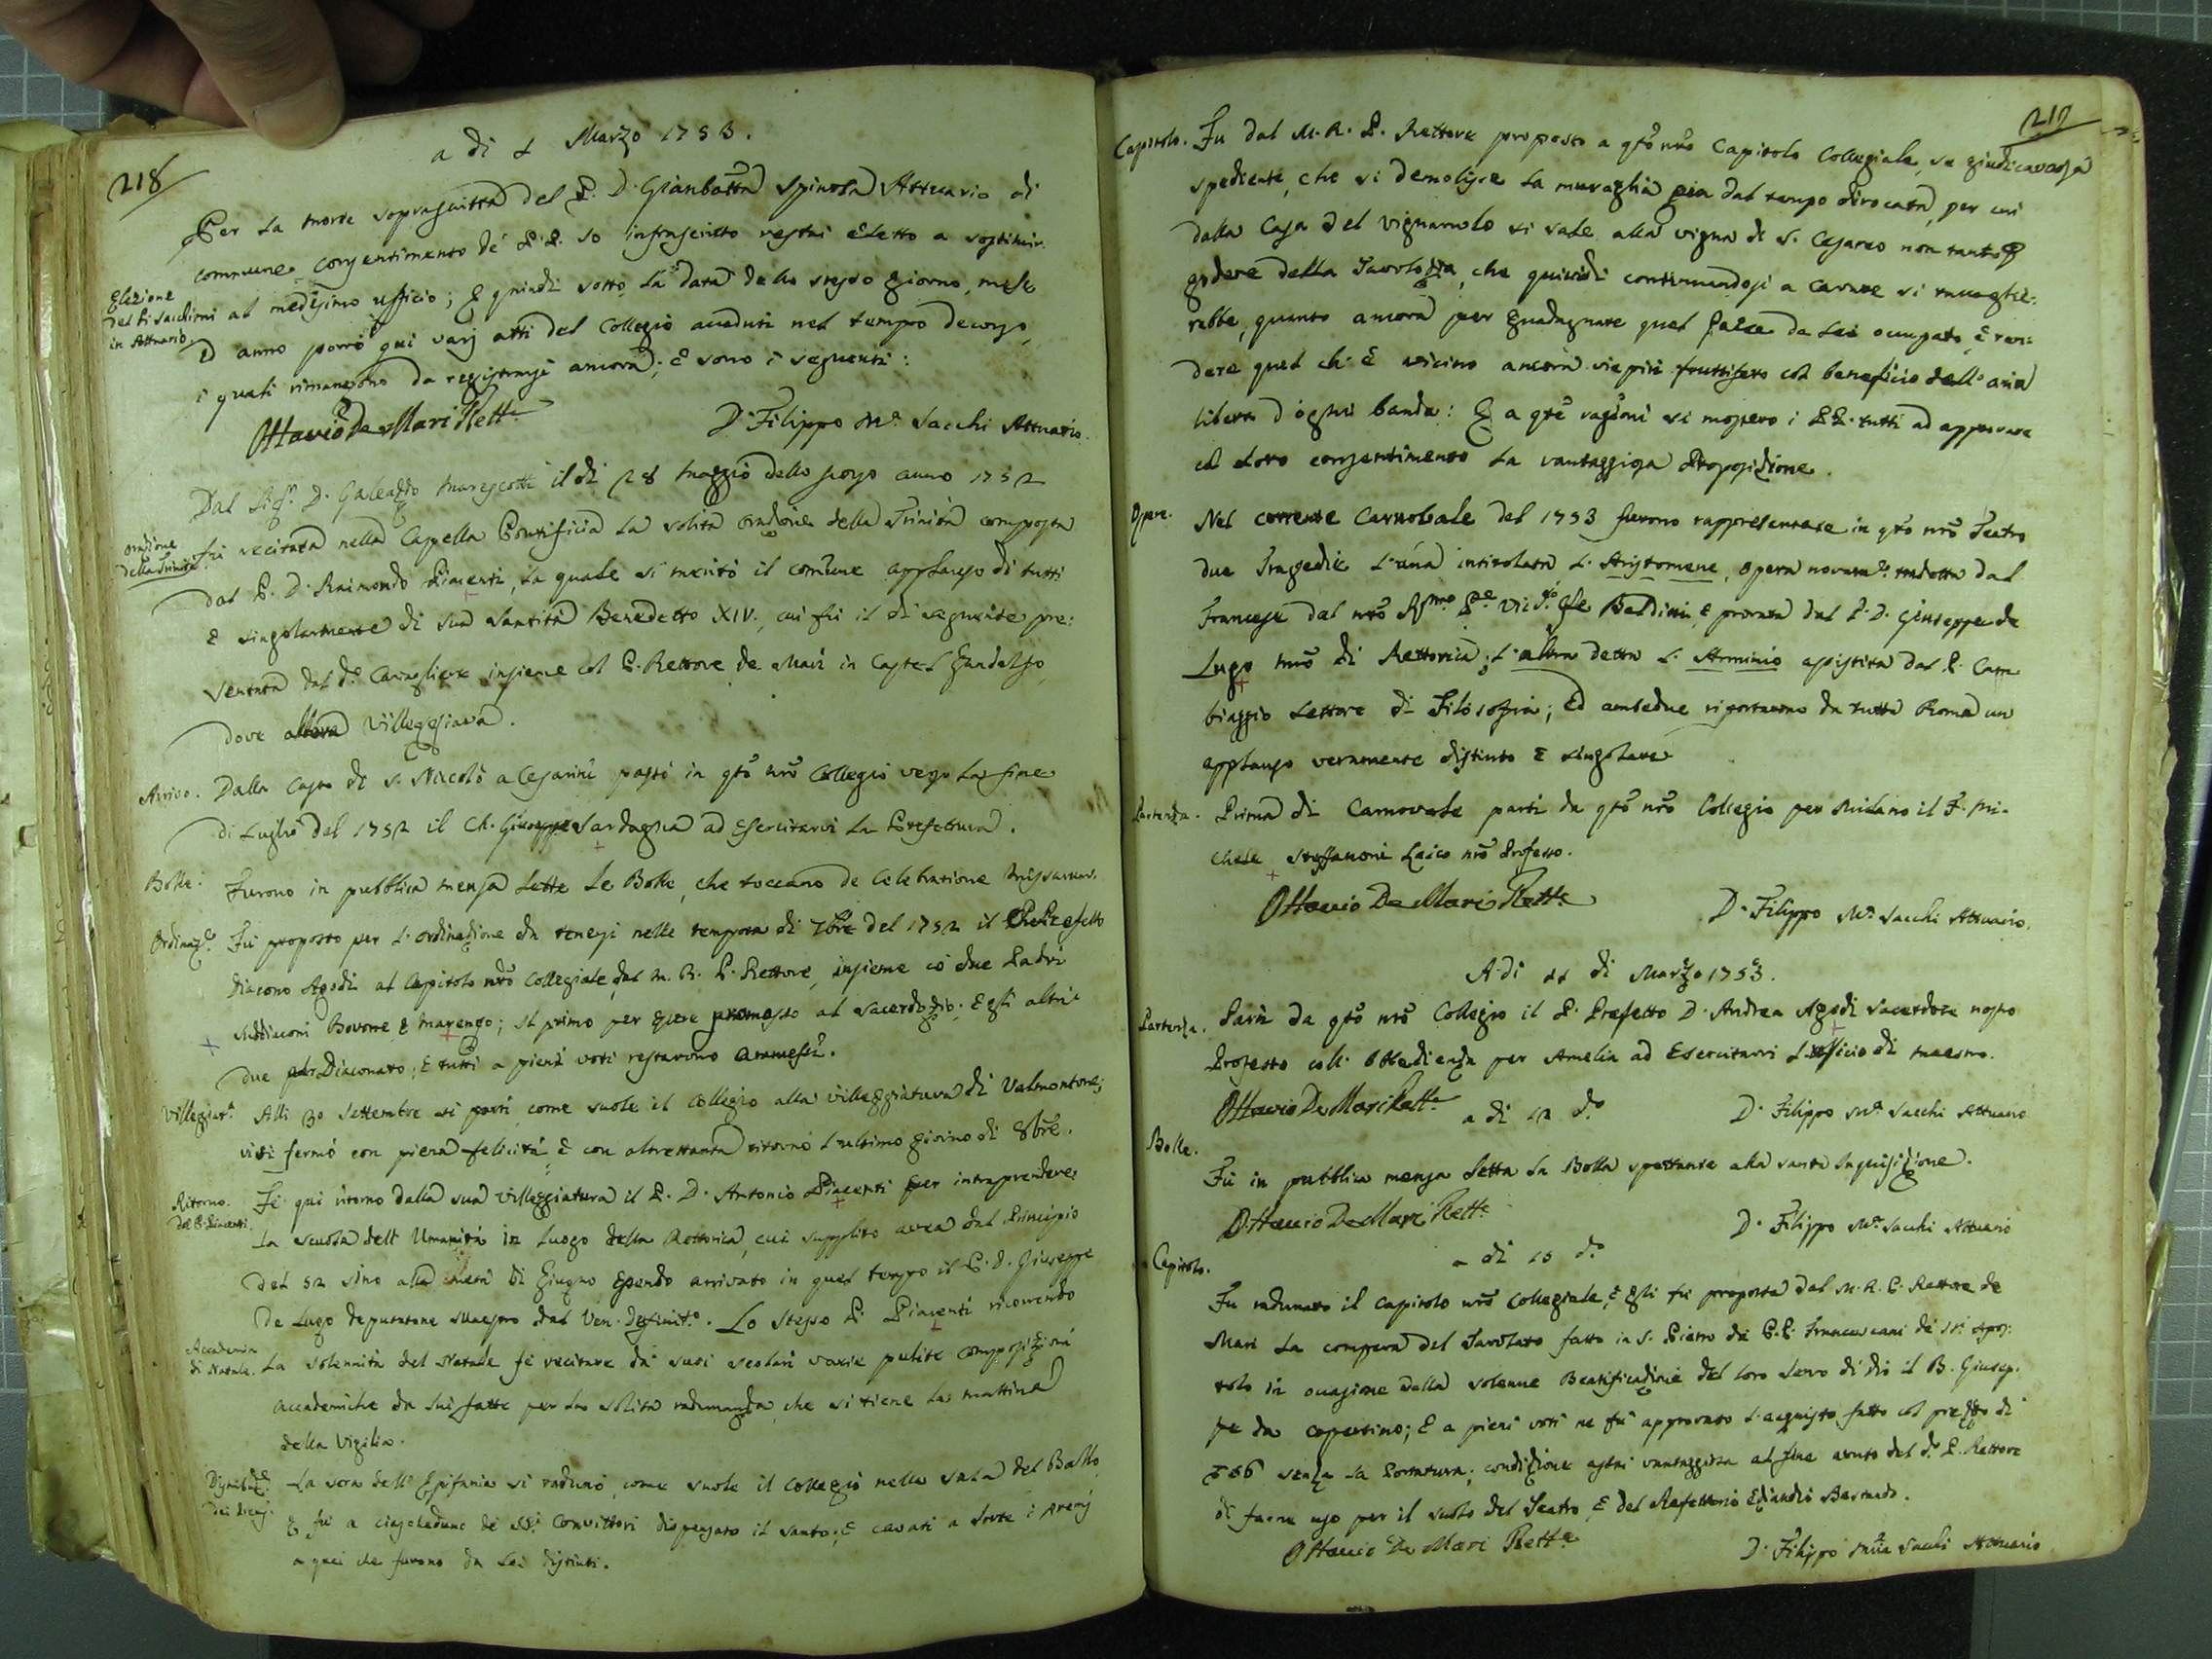 218
a di 1 Marzo 1753.
Per la morte sopraguitta del P. D. Gianbatta Spinola Attuario di
commune consentimento de' P.P. Io infrascritto restai eletto a sostituir.
Elezione
del P. Sacchi
in Attuario.
al medesimo ufficio; E quindi sotto la data dello stesso giorno, mese
d anno porrò qui varj atti del Collegio accaduti nel tempo decorso,
i quali rimangono da registrarsi ancora; e sono i seguenti:
Ottavio De Mari Rett.e
D. Filippo M.a Sacchi Attuario.
Dal Sig.r D. Galeazzo Marescotti il dì 28 Maggio dello scorso anno 1752
orazione
della Trinità
fu recitata nella Capella Pontificia la solita orazione della Trinità composta
dal P. D. Raimondo Piacenti, la quale si meritò il comune applauso di tutti
e singolarmente di sua Santità Benedetto XIV., cui fu il dì seguente pre:
sentata dal d.o Cavagliere insieme col P. Rettore de Mari in Castel Gandolfo,
dove allora villeggiava.
Arrivo. Dalla Casa di S. Nicolò a Cesarini passò in qto nro Collegio verso la fine
di Luglio del 1752 il Ch. Giuseppe Sardagna ad esercitarvi la Prefettura.
Bolle. Furono in pubblica mensa lette le Bolle, che toccano de Celebratione Missarum.
Ordinaz.e Fu proposto per l'ordinazione da tenersi nelle tempora di 7bre del 1752 il Prefetto
Diacono Agodi al Capitolo nro Collegiale dal M. R. P. Rettore, insieme cō due Padri
Suddiaconi Bovone e Marengo; il primo per essere promosso al sacerdozio; E gli altri
due per Diaconato; e tutti a pieni voti restarono ammessi.
Villeggiat.a Alli 30 Settembre si portò come suole il Collegio alla villeggiatura di Valmontone;
ivi si fermò con piena felicità e con altrettanta ritornò l'ultimo giorno di 8bre.
Ritorno.
del P. Piacenti.
Fè qui ritorno dalla sua villeggiatura il P. D. Antonio Piacenti per intraprendere
la scuola dell' Umanità in luogo della Rettorica, cui supplito avea dal Principio
del 52 sino alla metà di Giugno essendo arrivato in quel tempo il P. D. Giuseppe
De Lugo deputatone Maestro dal Ven. Definit.o. Lo stesso P. Piacenti ricorrendo
Accademia
di Natale.
la solennità del Natale fè recitare da' suoi scolari varie pulite composizioni
accademiche da lui fatte per la solita radunanza che si tiene la mattina
della Vigilia.
Distribuz.e
dei Premj.
La sera dell' Epifania si radunò, come suole il Collegio nella sala del Ballo,
e fu a ciascheduno de' SS.ri Convittori dispensato il santo; e cavati a sorte i premj
a quei che furono da lei distinti.
219
Capitolo. Fu dal M. R. P. Rettore proposto a qto nro Capitolo Collegiale, se giudicavasi
spediente, che si demolisse la muraglia gia dal tempo dirocata, per cui
dalla Casa del Vignarolo si sale alla vigna di S. Cesareo non tanto p
godere della che quindi continuandosi a cavare si
rebbe, quanto ancora per guadagnare quel da lei occupato, e ren:
dere quel ch' è vicino ancora viepiù fruttifero col beneficio dell' aria
libera d' ogni banda: E a qte ragioni si mossero i PP. tutti ad approvare
col loro consentimento la vantaggiosa Proposizione.
Opere. Nel corrente Carnovale del 1753 furono rappresentate in qto nro Teatro
due Tragedie l'una intitolata l'Aristomene, opera novam.te tradotta dal
Francese dal nro Rmo P.re Vic.o Gle Baldini, e provata dal P. D. Giuseppe de
Lugo mro di Rettorica; l'altra detta l'Arminio assistita dal P. Cam
biaggio Lettore di Filosofia; Ed ambedue riportarono da tutta Roma un
applauso veramente distinto e singolare.
Partenza. Prima di Carnovale partì da qto nro Collegio per Milano il F. Mi-
chele Steffanoni Laico nro Professo.
Ottavio De Mari Rett.e
D. Filippo M.a Sacchi Attuario.
A di 11 di Marzo 1753.
Partenza. Partì da qto nro Collegio il P. Prefetto D. Andrea Agodi Sacerdote nostro
Professo coll' Obbedienza per Amelia ad esercitarvi l'ufficio di maestro.
Ottavio De Mari Rett.e
a di 12 d.o
D. Filippo M.a Sacchi Attuario
Bolle.
Fu in pubblica mensa letta la Bolla spettante alla santa Inquisizione.
Ottavio De Mari Rett.e
D. Filippo M.a Sacchi Attuario
a di 15 d.o
Capitolo.
Fu radunato il Capitolo nro Collegiale, e gli fu proposta dal M. R. P. Rettore de
Mari la compera del Tavolato fatto in S. Pietro da P.P. Francescani de' SS.i Apos:
toli in occasione della solenne Beatificazione del loro Servo di Dio il B. Giusep.
pe da Copertino; e a pieni voti ne fu approvato l'acquisto fatto col prezzo di
senza la Portatura; condizione assai vantaggiosa al fine avuto dal d.o P. Rettore
di farne uso per il suolo del Teatro, e del Refettorio
Ottavio De Mari Rett.e
D. Filippo Mria Sacchi Attuario